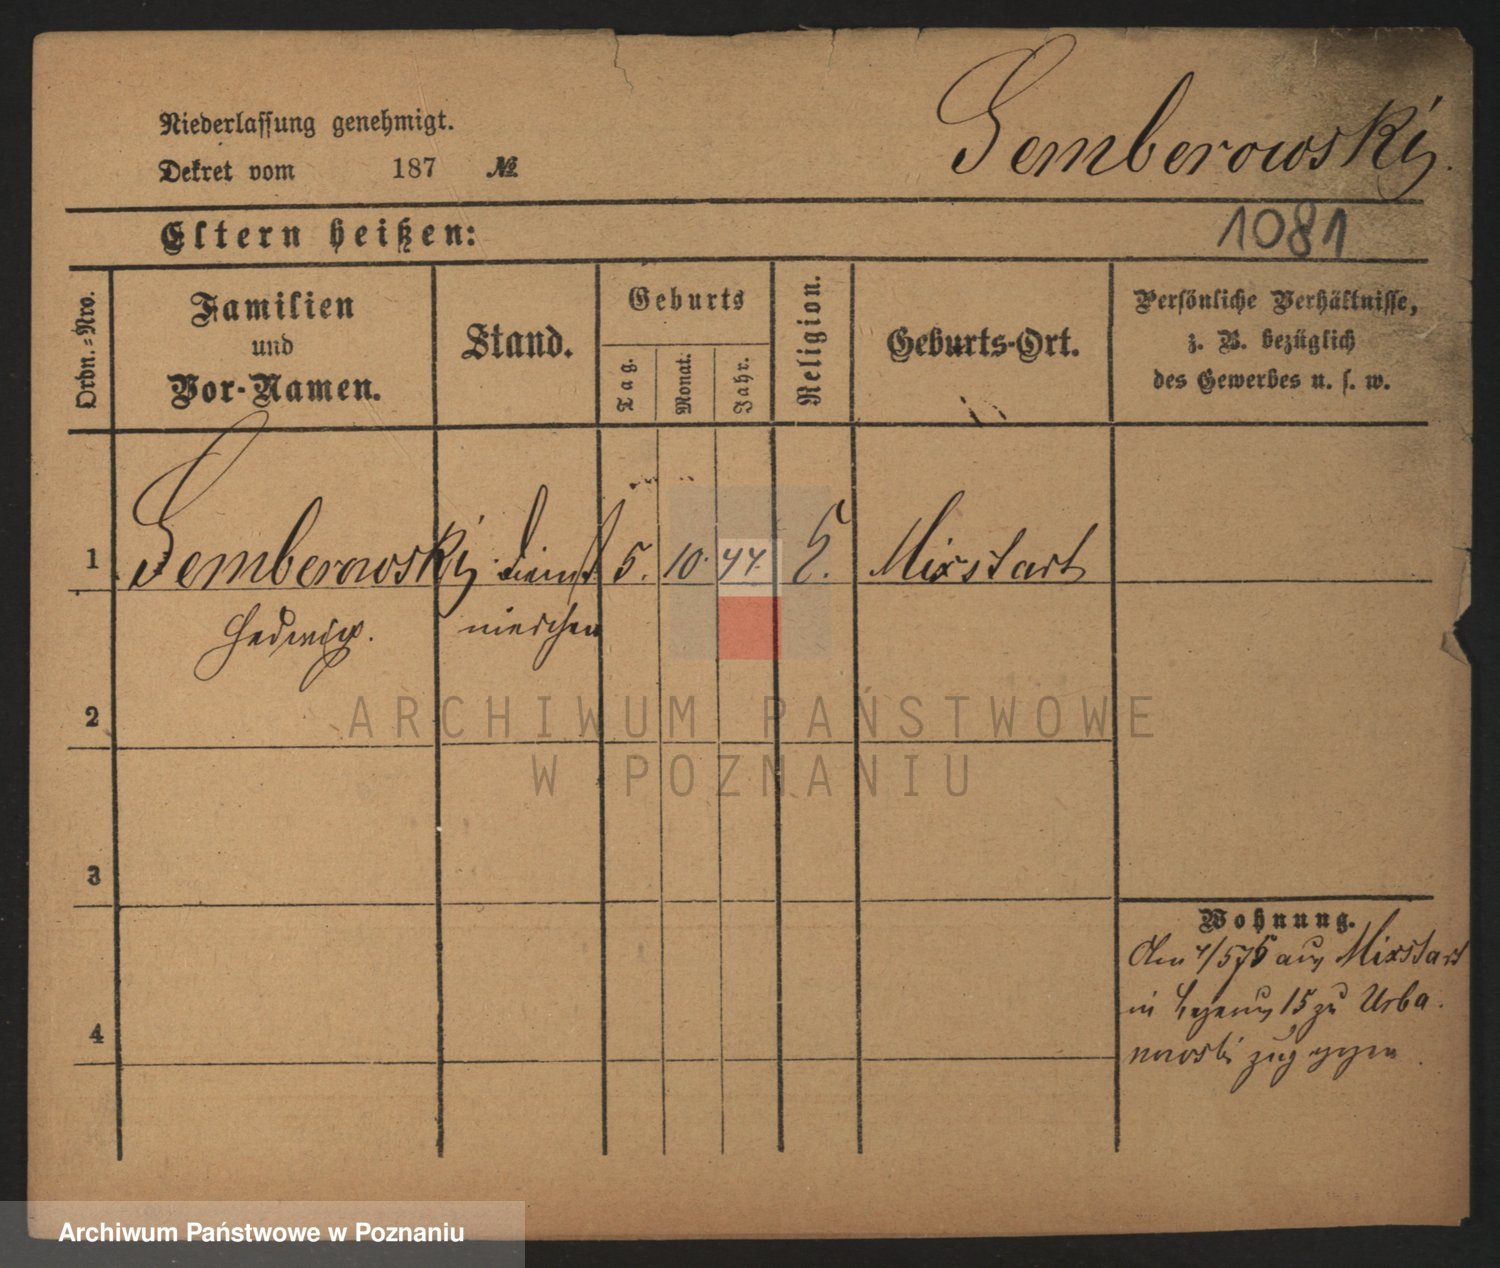 Niederlassung genehmigt.
Dekret vom 187 №
Gemberowski.
1081
Eltern heißen:
Ordn.-Nro.
Familien
und
Vor-Namen.
Stand.
Geburts
Tag.
Monat.
Jahr.
Religion.
Geburts-Ort.
Persönliche Verhältnisse,
z. B. bezüglich
des Gewerbes u. s. w.
1 Gemberowski Dienst 5. 10. 44. Mixstadt
Hedwig. mädchen
2
3
4
Wohnung.
Am 4/5 76 aus Mixstadt
in 15 zu Urba
nowski zugezogen
ARCHIWUM PAŃSTWOWE
W POZNANIU
Archiwum Państwowe w Poznaniu